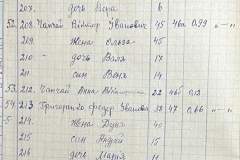 207. дочь Вера 6
52. 208. Чапчай Виктор Иванович 45 46а 0,99 " — "
209. жена Ольга 45
210. — дочь Валя 17
211 сын Ваня 14
53. 212. Чапчай Анна 22 46б 0,12
54. 213 Григоренко Федор Иванов 38 47 0,66 " — "
214 жена Дуня 40
215 сын Андрей 15
216 дочь Мария 11